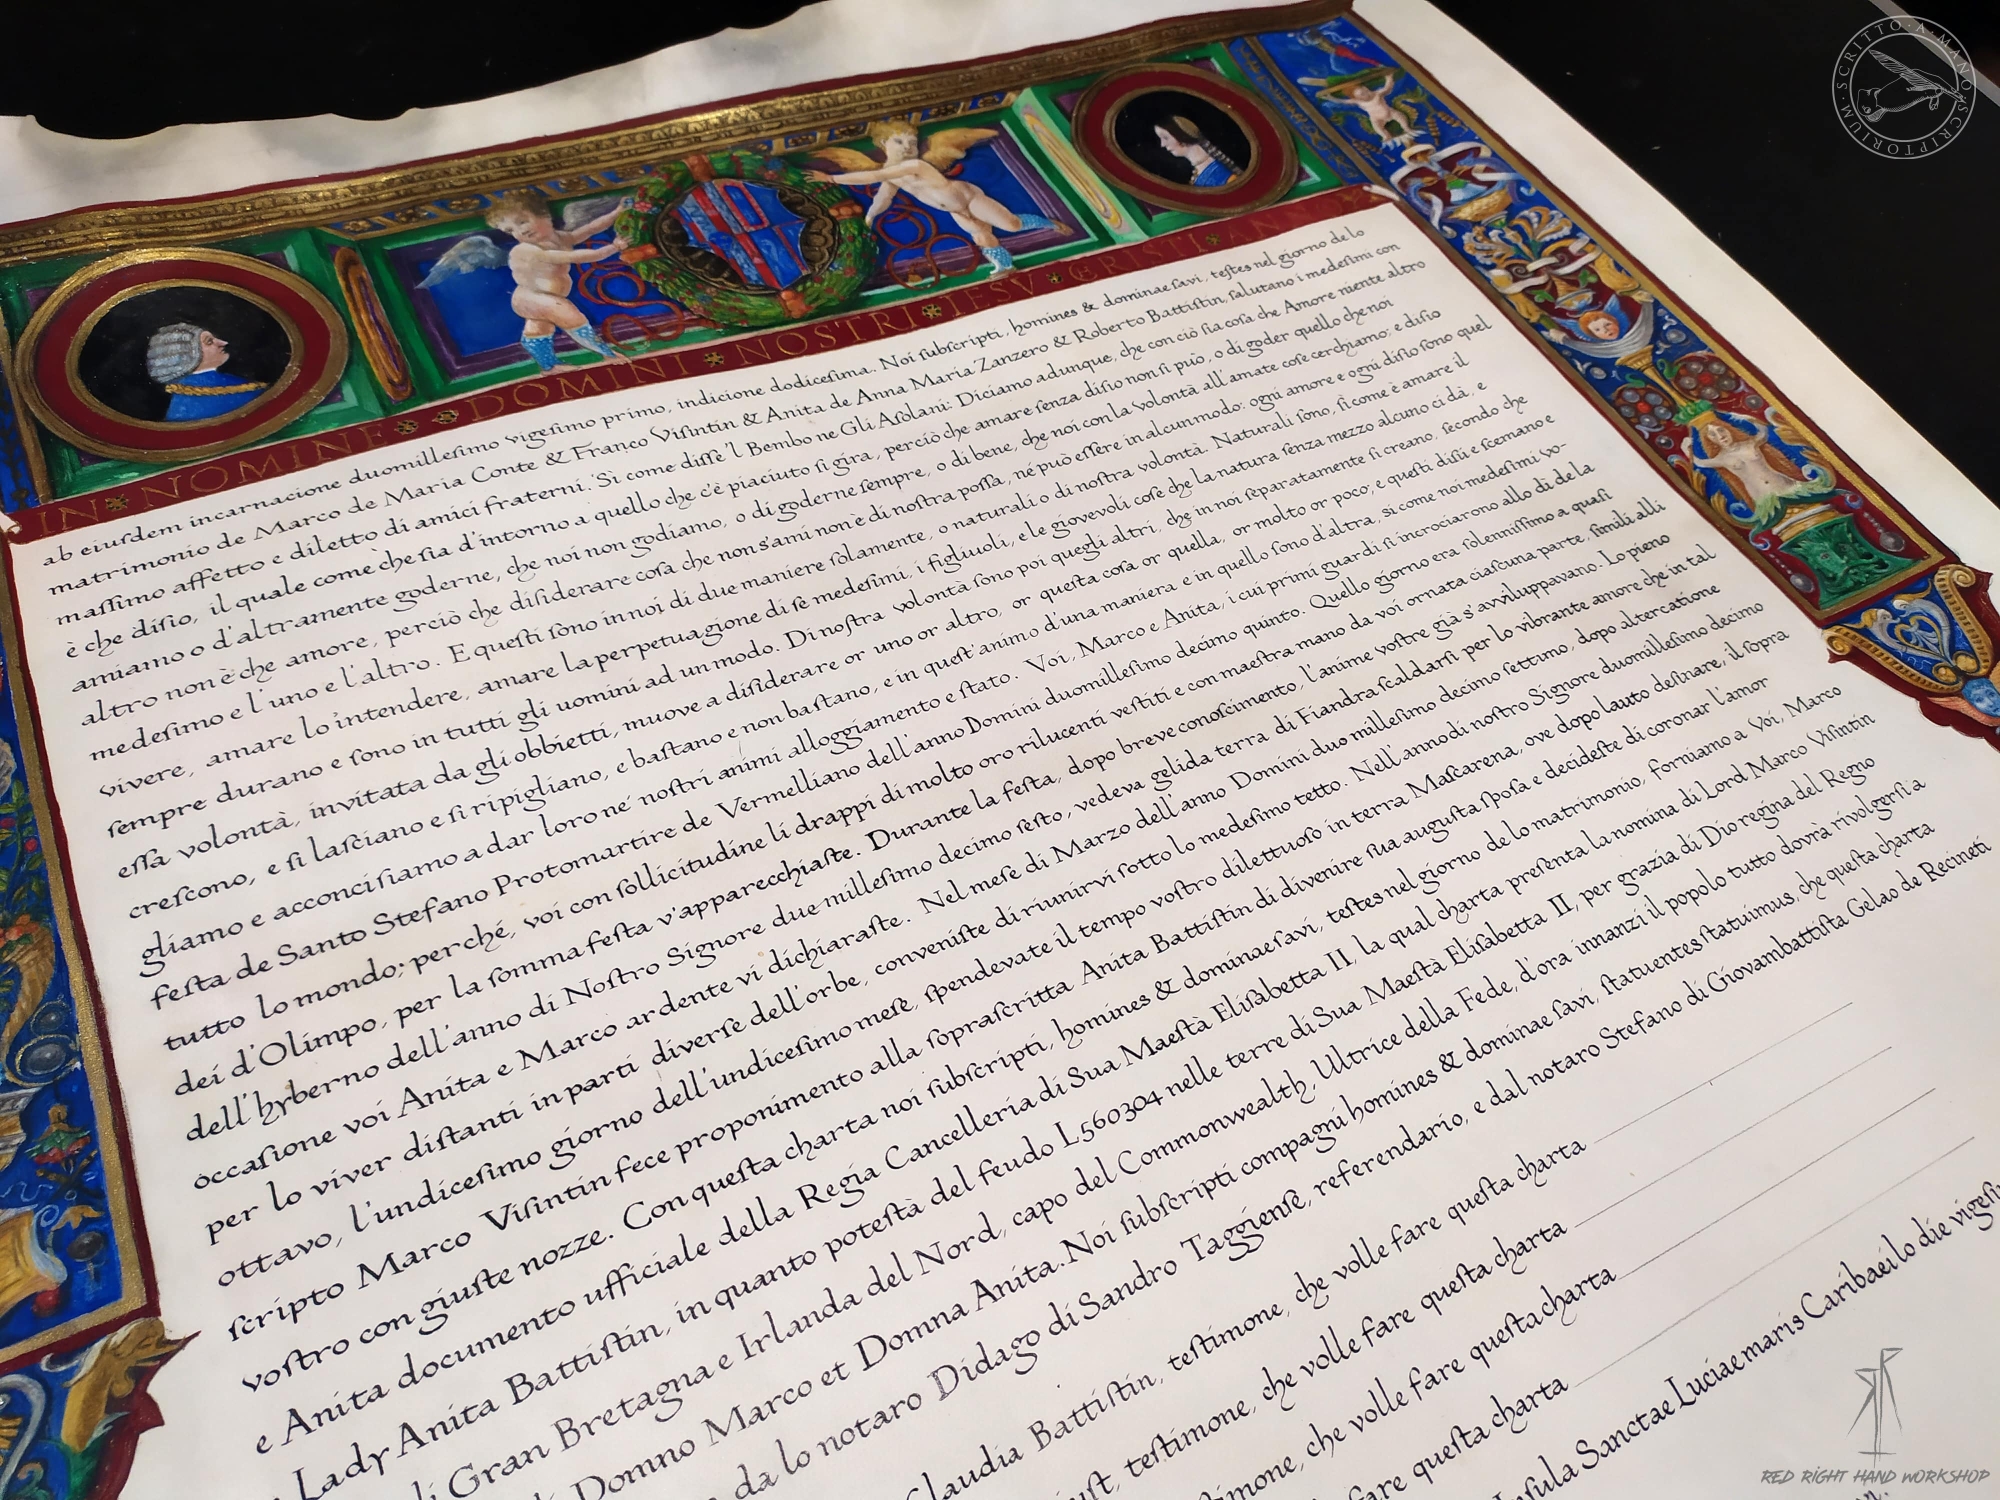 IN NOMINE DOMINI NOSTRI IESV CRISTI ANNO
ab eiusdem incarnacione duomillesimo vigesimo primo, indicione dodicesima. Noi subscripti, homines & dominae savi, testes nel giorno de lo
matrimonio de Marco de Maria Conte & Franco Visintin & Anita de Anna Maria Zanzero & Roberto Battistin, salutano i medesimi con
massimo affetto e diletto di amici fraterni. Sì come disse 'l Bembo ne Gli Asolani: Diciamo adunque, che con ciò sia cosa che Amore niente altro
è che disio, il quale come che sia d'intorno a quello che c'è piaciuto si gira, perciò che amare senza disio non si può, o di goder quello che noi
amiamo o d'altramente goderne, che noi non godiamo, o di goderne sempre, o di bene, che noi con la volontà all'amate cose cerchiamo; e disio
altro non è che amore, perciò che disiderare cosa che non s'ami non è di nostra possa, né può essere in alcun modo: ogni amore e ogni disio sono quel
medesimo e l'uno e l'altro. E questi sono in noi di due maniere solamente, o naturali o di nostra volontà. Naturali sono, sì come è amare il
vivere, amare lo 'ntendere, amare la perpetuagione di se medesimi, i figliuoli, e le giovevoli cose che la natura senza mezzo alcuno ci dà, e
sempre durano e sono in tutti gli uomini ad un modo. Di nostra volontà sono poi quegli altri, che in noi separatamente si creano, secondo che
essa volontà, invitata da gli obbietti, muove a disiderare or uno or altro, or questa cosa or quella, or molto or poco; e questi disii e scemano e
crescono, e si lasciano e si ripigliano, e bastano e non bastano, e in quest'animo d'una maniera e in quello sono d'altra, sì come noi medesimi vo-
gliamo e acconci siamo a dar loro ne' nostri animi alloggiamento e stato. Voi, Marco e Anita, i cui primi guardi si incrociarono allo dì de la
festa de Santo Stefano Protomartire de Vermelliano dell'anno Domini duomillesimo decimo quinto. Quello giorno era solennissimo a quasi
tutto lo mondo; perché, voi con sollicitudine li drappi di molto oro rilucenti vestiti e con maestra mano da voi ornata ciascuna parte, simili alli
dei d'Olimpo, per la somma festa v'apparecchiaste. Durante la festa, dopo breve conoscimento, l'anime vostre già s'avviluppavano. Lo pieno
dell'hyberno dell'anno di Nostro Signore due millesimo decimo sesto, vedeva gelida terra di Fiandra scaldarsi per lo vibrante amore che in tal
occasione voi Anita e Marco ardente vi dichiaraste. Nel mese di Marzo dell'anno Domini duo millesimo decimo settimo, dopo altercatione
per lo viver distanti in parti diverse dell'orbe, conveniste di riunirvi sotto lo medesimo tetto. Nell'anno di nostro Signore duomillesimo decimo
ottavo, l'undicesimo giorno dell'undicesimo mese, spendevate il tempo vostro dilettuoso in terra Mascarena, ove dopo lauto desinare, il sopra
scripto Marco Visintin fece proponimento alla soprascritta Anita Battistin di divenire sua augusta sposa e decideste di coronar l'amor
vostro con giuste nozze. Con questa charta noi subscripti, homines & dominae savi, testes nel giorno de lo matrimonio, forniamo a Voi, Marco
e Anita documento ufficiale della Regia Cancelleria di Sua Maestà Elisabetta II, la qual charta presenta la nomina di Lord Marco Visintin
Lady Anita Battistin, in quanto potestà del feudo L560304 nelle terre di Sua Maestà Elisabetta II, per grazia di Dio regina del Regno
di Gran Bretagna e Irlanda del Nord, capo del Commonwealth, Ultrice della Fede, d'ora innanzi il popolo tutto dovrà rivolgersi a
Domno Marco et Domna Anita. Noi subscripti compagni homines & dominae savi, statuentes statuimus, che questa charta
da lo notaro Didago di Sandro Taggiense, referendario, e dal notaro Stefano di Giovambattista Gelao de Recineti
Claudia Battistin, testimone, che volle fare questa charta
testimone, che volle fare questa charta
testimone, che volle fare questa charta
fare questa charta
Insula Sanctae Luciae maris Caribaei lo die
SCRITTO·A·MANO
SCRIPTORIUM
RED RIGHT HAND WORKSHOP